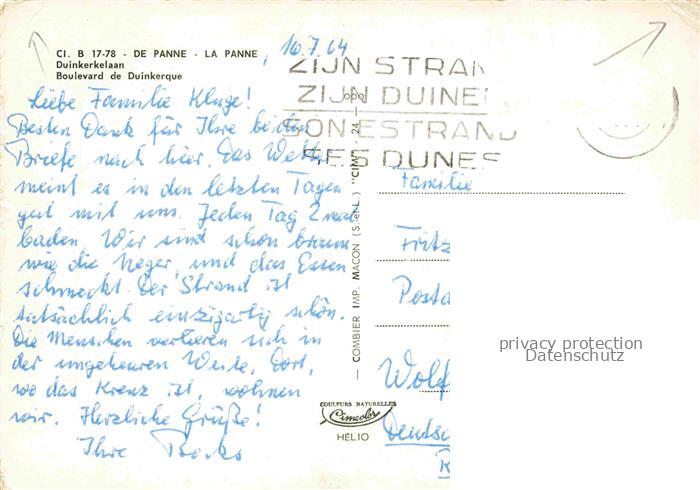 CI. B 17-78 - DE PANNE - LA PANNE
Duinkerkelaan
Boulevard de Duinkerque
16.7.64
ZIJN STRAN
ZIJN DUINE
SON ESTRAND
SES DUNES
Liebe Familie Kluge!
Besten Dank für Ihre beiden
Briefe nach hier. Das Wetter
meint es in den letzten Tagen
gut mit uns. Jeden Tag 2 mal
baden. Wir sind schon braun
wie die Neger, und das Essen
schmeckt. Der Strand ist
tatsächlich einzigartig schön.
Die Menschen verlieren sich in
der ungeheuren Weite. Dort,
wo das Kreuz ist, wohnen
wir. Herzliche Grüße!
Ihre
— COMBIER IMP. MACON (S.-et-L.) "CIM" - 24 —
COULEURS NATURELLES
Cimcolor
HÉLIO
Familie
Fritz
Posta
Wolf
Deutsc
privacy protection
Datenschutz